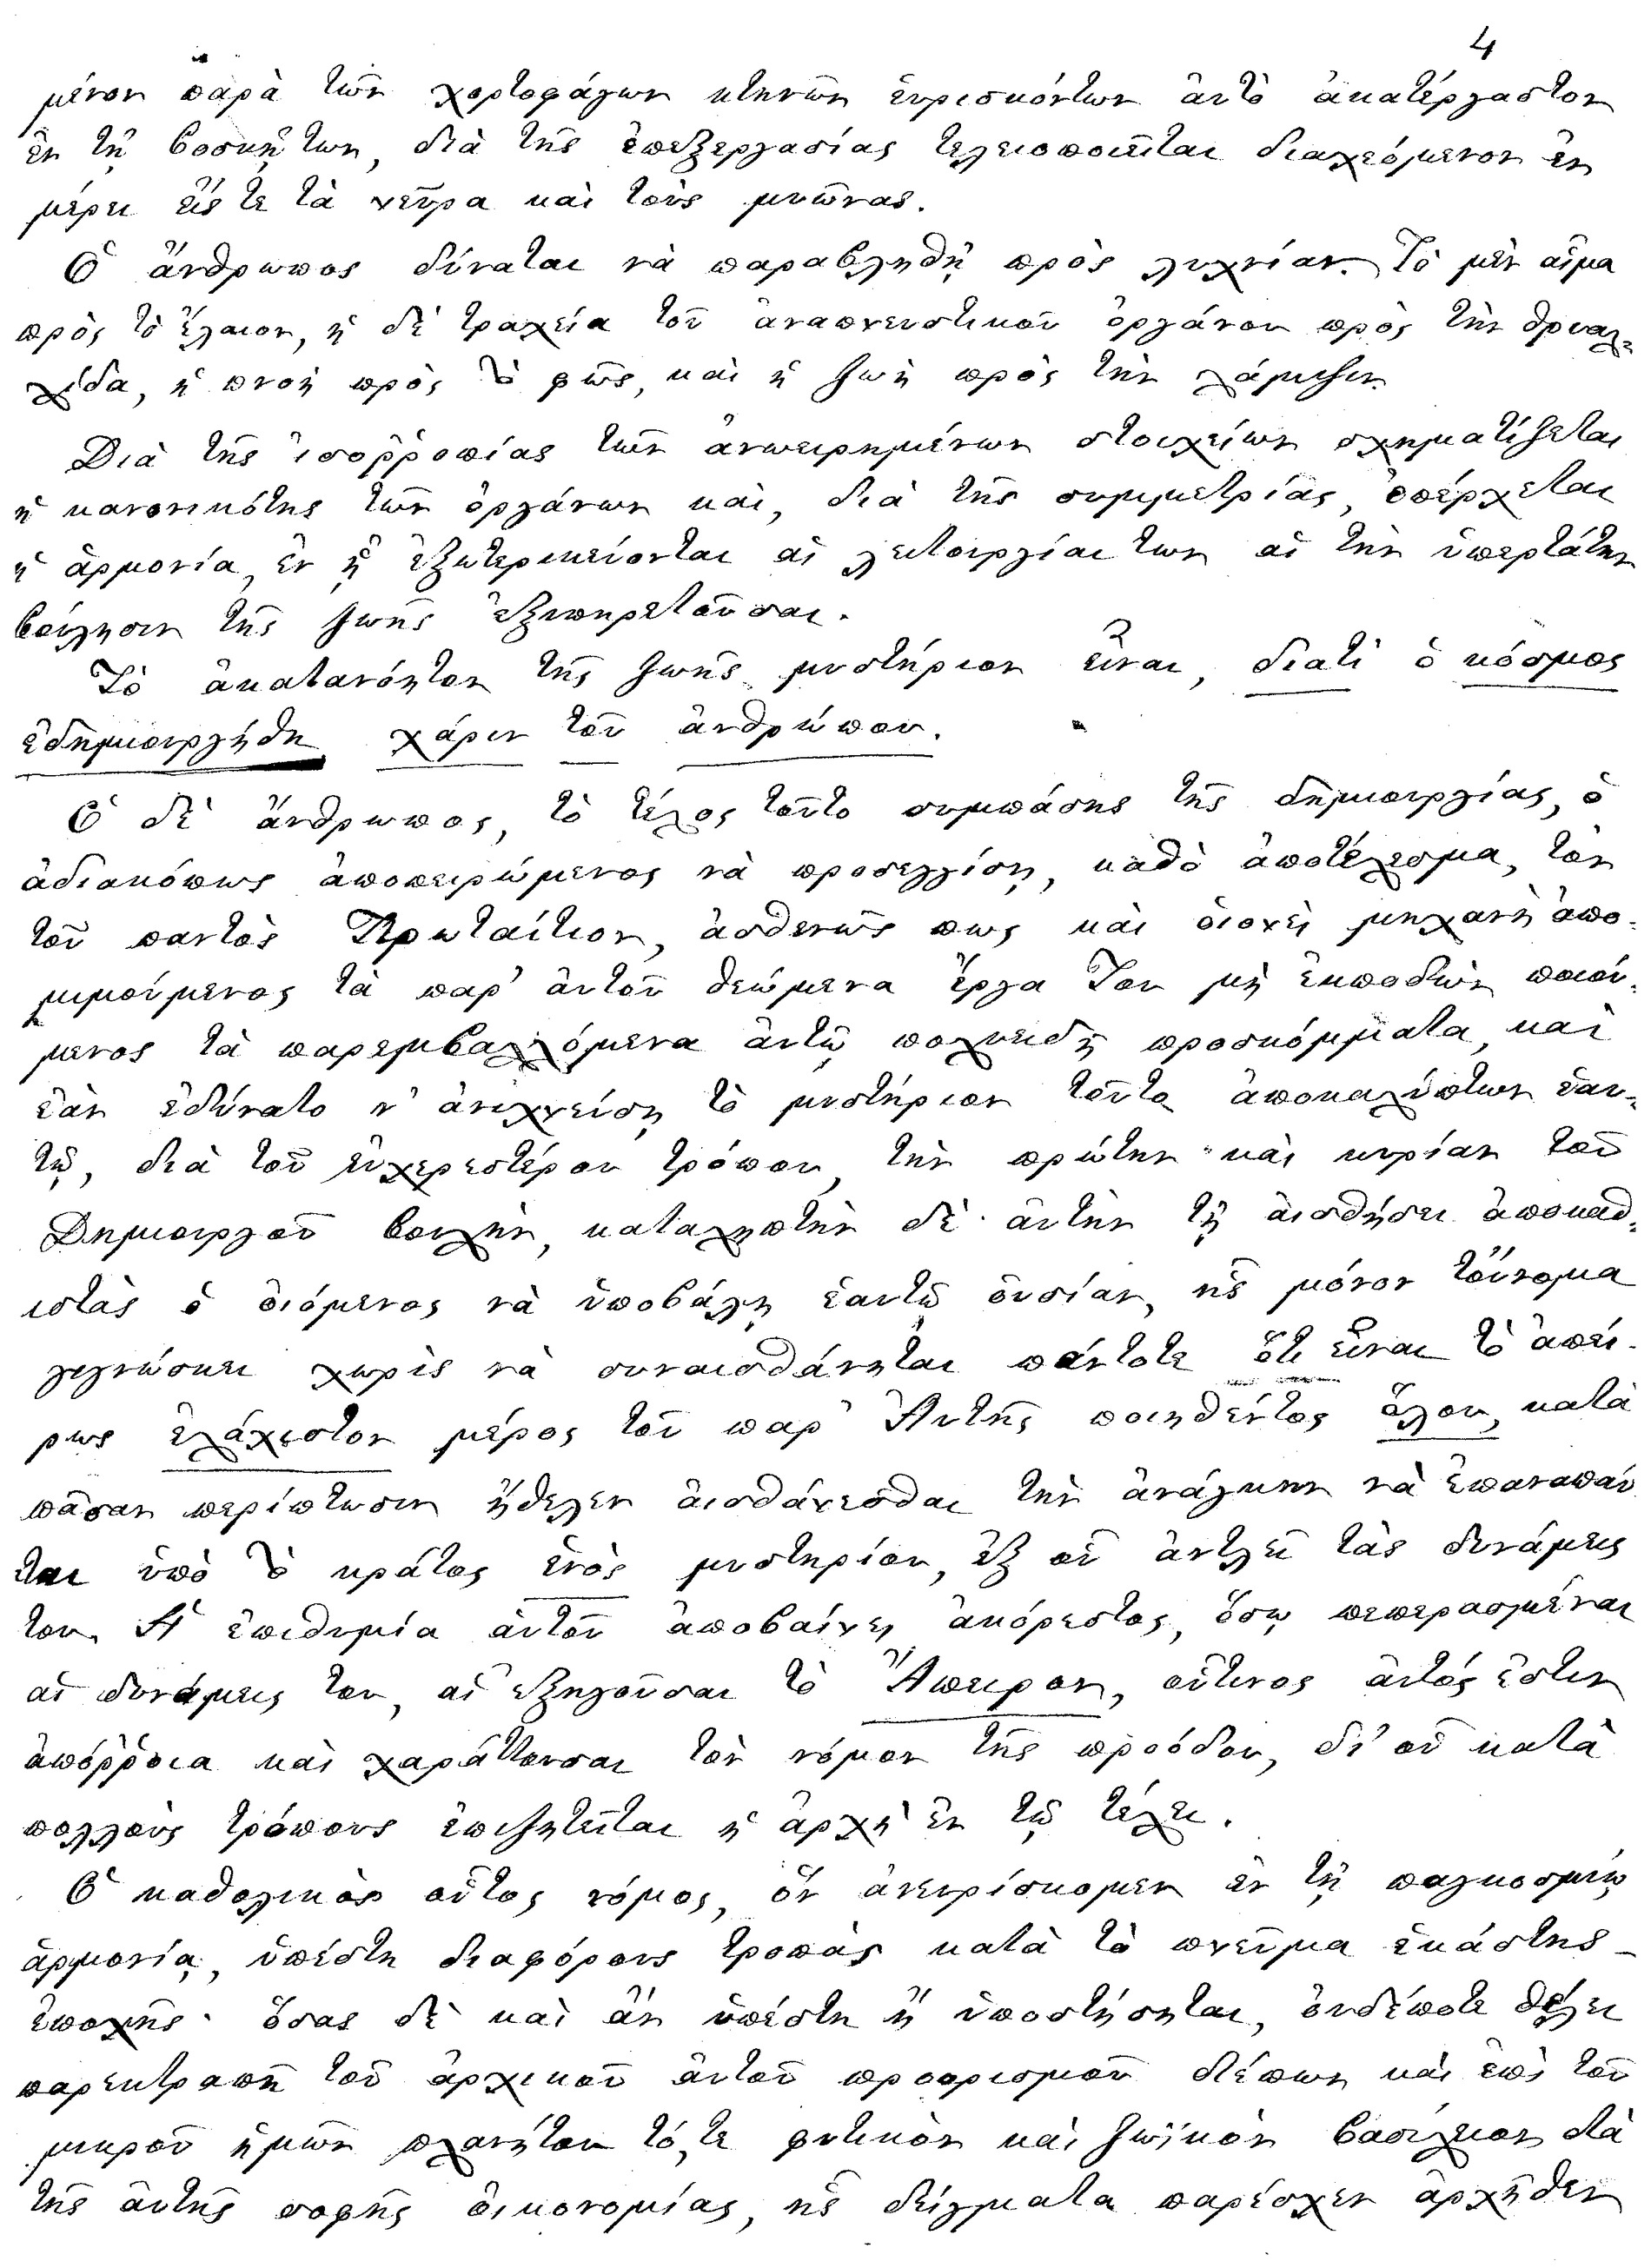 4
μένον παρὰ τῶν χορτοφάγων κτηνῶν εὑρισκόντων ἀυτὸ ἀκατέργαστον
ἐν τῇ βοσκῇ των, διὰ τῆς ἐπεξεργασίας τελειοποιεῖται διαχεόμενον ἐν
μέρει εἴς τε τὰ νεῦρα καὶ τοὺς μυῶνας.
Ὁ ἄνθρωπος δύναται νὰ παραβληθῇ πρὸς λυχνίαν. Τὸ μὲν αἷμα
πρὸς τὸ ἔλαιον, ἡ δὲ τραχεία τοῦ ἀναπνευστικοῦ ὀργάνου πρὸς τὴν θρυαλ-
χίδα, ἡ πνοὴ πρὸς τὸ φῶς, καὶ ἡ ζωὴ πρὸς τὴν λάμψιν.
Διὰ τῆς ἰσοῤῥοπίας τῶν ἀνωειρημένων στοιχείων σχηματίζεται
ἡ κανονικότης τῶν ὀργάνων καὶ, διὰ τῆς συμμετρίας, ἐπέρχεται
ἡ ἁρμονία, ἐν ᾗ ἐξωτερικεύονται αἱ λειτουργίαι των αἱ τὴν ὑπερτάτην
βούλησιν τῆς ζωῆς ἐξυπηρετοῦσαι.
Τὸ ἀκατανόητον τῆς ζωῆς μυστήριον εἶναι, διατὶ ὁ κόσμος
ἐδημιουργήθη χάριν τοῦ ἀνθρώπου.
Ὁ δὲ ἄνθρωπος, τὸ τέλος τοῦτο συμπάσης τῆς δημιουργίας, ὁ
ἀδιακόπως ἀποπειρώμενος νὰ προσεγγίσῃ, καθὸ ἀποτέλεσμα, τὸν
τοῦ παντὸς Πρωταίτιον, ἀσθενῶς πως καὶ οἱονεὶ μηχανῇ ἀπο-
μιμούμενος τὰ παρ' ἀυτοῦ θεώμενα ἔργα Του μὴ ἐκποδὼν ποιού-
μενος τὰ παρεμβαλλόμενα ἀυτῷ πολυειδῆ προσκόμματα, καὶ
ἐὰν ἐδύνατο ν' ἀνιχνεύσῃ τὸ μυστήριον τοῦτο ἀποκαλύπτων ἑαυ-
τῷ, διὰ τοῦ ἐυχερεστέρου τρόπου, τὴν πρώτην καὶ κυρίαν τοῦ
Δημιουργοῦ βουλὴν, καταληπτὴν δὲ ἀυτὴν τῇ ἀισθήσει ἀποκαθ-
ιστὰς ὁ ὀιόμενος νὰ ὑποβάλῃ ἑαυτῷ ὀυσίαν, ἧς μόνον τοὔνομα
γιγνώσκει χωρὶς νὰ συναισθάνηται πάντοτε ὅτι εἶναι τὸ ἀπεί-
ρως ἐλάχιστον μέρος τοῦ παρ' Ἀυτῆς ποιηθέντος ὅλου, κατὰ
πᾶσαν περίπτωσιν ἤθελεν ἀισθάνεσθαι τὴν ἀνάγκην νὰ ἐπαναπαύ
ται ὑπὸ τὸ κράτος ἑνὸς μυστηρίου, ἐξ οὗ ἀντλεῖ τὰς δυνάμεις
του. Ἡ ἐπιθυμία ἀυτοῦ ἀποβαίνει ἀκόρεστος, ὅσῳ πεπερασμέναι
αἱ δυνάμεις του, αἱ ἐξηγοῦσαι τὸ Ἄπειρον, οὗτινος ἀυτός ἐστιν
ἀπόῤῥοια καὶ χαράττουσαι τὸν νόμον τῆς προόδου, δι' οὗ κατὰ
πολλοὺς τρόπους ἐπιζητεῖται ἡ ἀρχὴ ἐν τῷ τέλει.
Ὁ καθολικὸς οὗτος νόμος, ὃν ἀνευρίσκομεν ἐν τῇ παγκοσμίῳ
ἁρμονίᾳ, ὑπέστη διαφόρους τροπὰς κατὰ τὸ πνεῦμα ἑκάστης
ἐποχῆς· ὅσας δὲ καὶ ἂν ὑπέστη ἢ ὑποστήσηται, ὀυδέποτε θέλει
παρεκτραπῆ τοῦ ἀρχικοῦ ἀυτοῦ προορισμοῦ διέπων καὶ ἐπὶ τοῦ
μικροῦ ἡμῶν πλανήτου τό,τε φυτικὸν καὶ ζωϊκὸν βασίλειον διὰ
τῆς ἀυτῆς σοφῆς ὀικονομίας, ἧς δείγματα παρέσχεν ἀρχῆθεν